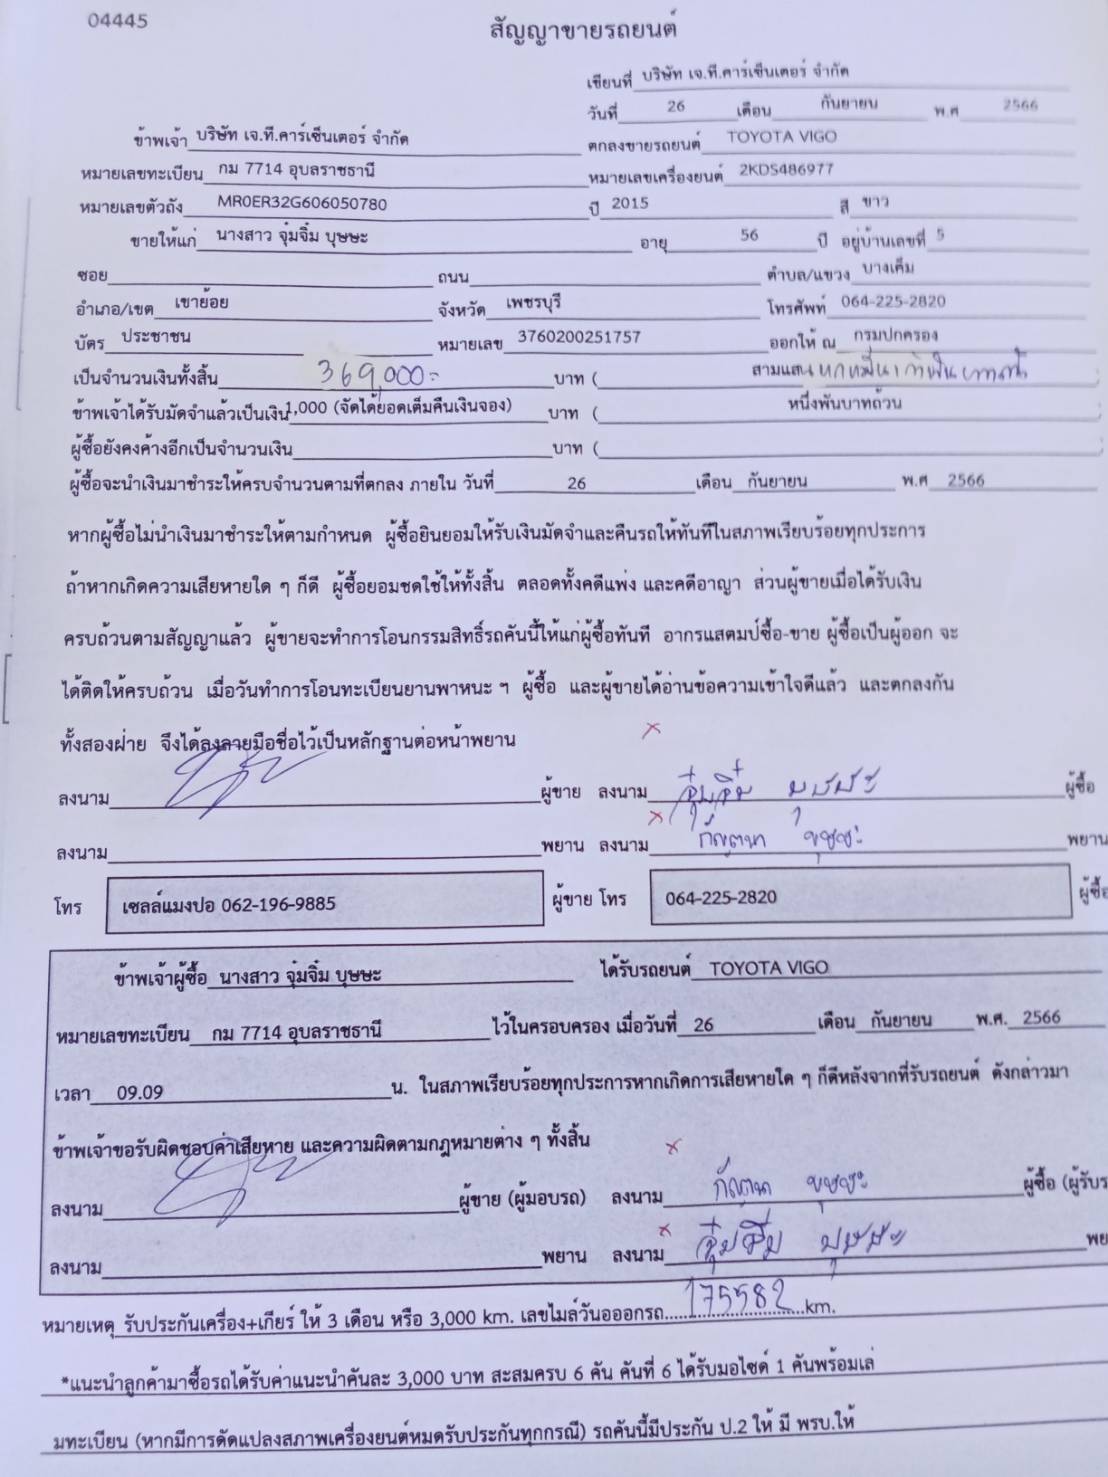 04445
สัญญาขายรถยนต์
เขียนที่ บริษัท เจ.ที.คาร์เซ็นเตอร์ จำกัด
วันที่ 26 เดือน กันยายน พ.ศ 2566
ข้าพเจ้า บริษัท เจ.ที.คาร์เซ็นเตอร์ จำกัด ตกลงขายรถยนต์ TOYOTA VIGO
หมายเลขทะเบียน กม 7714 อุบลราชธานี หมายเลขเครื่องยนต์ 2KDS486977
หมายเลขตัวถัง MR0ER32G606050780 ปี 2015 สี ขาว
ขายให้แก่ นางสาว จุ๋มจิ๋ม บุษษะ อายุ 56 ปี อยู่บ้านเลขที่ 5
ซอย ถนน ตำบล/แขวง บางเค็ม
อำเภอ/เขต เขาย้อย จังหวัด เพชรบุรี โทรศัพท์ 064-225-2820
บัตร ประชาชน หมายเลข 3760200251757 ออกให้ ณ กรมปกครอง
เป็นจำนวนเงินทั้งสิ้น 369,000.- บาท ( สามแสนหกหมื่นเก้าพันบาทถ้วน
ข้าพเจ้าได้รับมัดจำแล้วเป็นเงิน 1,000 (จัดได้ยอดเต็มคืนเงินจอง) บาท ( หนึ่งพันบาทถ้วน )
ผู้ซื้อยังคงค้างอีกเป็นจำนวนเงิน บาท ( )
ผู้ซื้อจะนำเงินมาชำระให้ครบจำนวนตามที่ตกลง ภายใน วันที่ 26 เดือน กันยายน พ.ศ 2566
หากผู้ซื้อไม่นำเงินมาชำระให้ตามกำหนด ผู้ซื้อยินยอมให้รับเงินมัดจำและคืนรถให้ทันทีในสภาพเรียบร้อยทุกประการ
ถ้าหากเกิดความเสียหายใด ๆ ก็ดี ผู้ซื้อยอมชดใช้ให้ทั้งสิ้น ตลอดทั้งคดีแพ่ง และคดีอาญา ส่วนผู้ขายเมื่อได้รับเงิน
ครบถ้วนตามสัญญาแล้ว ผู้ขายจะทำการโอนกรรมสิทธิ์รถคันนี้ให้แก่ผู้ซื้อทันที อากรแสตมป์ซื้อ-ขาย ผู้ซื้อเป็นผู้ออก จะ
ได้ติดให้ครบถ้วน เมื่อวันทำการโอนทะเบียนยานพาหนะ ฯ ผู้ซื้อ และผู้ขายได้อ่านข้อความเข้าใจดีแล้ว และตกลงกัน
ทั้งสองฝ่าย จึงได้ลงลายมือชื่อไว้เป็นหลักฐานต่อหน้าพยาน
ลงนาม ผู้ขาย ลงนาม จุ๋มจิ๋ม บุษษะ ผู้ซื้อ
ลงนาม พยาน ลงนาม บุษษะ พยาน
โทร เซลล์แมงปอ 062-196-9885 ผู้ขาย โทร 064-225-2820 ผู้ซื้อ
ข้าพเจ้าผู้ซื้อ นางสาว จุ๋มจิ๋ม บุษษะ ได้รับรถยนต์ TOYOTA VIGO
หมายเลขทะเบียน กม 7714 อุบลราชธานี ไว้ในครอบครอง เมื่อวันที่ 26 เดือน กันยายน พ.ศ. 2566
เวลา 09.09 น. ในสภาพเรียบร้อยทุกประการหากเกิดการเสียหายใด ๆ ก็ดีหลังจากที่รับรถยนต์ ดังกล่าวมา
ข้าพเจ้าขอรับผิดชอบค่าเสียหาย และความผิดตามกฎหมายต่าง ๆ ทั้งสิ้น
ลงนาม ผู้ขาย (ผู้มอบรถ) ลงนาม บุษษะ ผู้ซื้อ (ผู้รับร
ลงนาม พยาน ลงนาม จุ๋มจิ๋ม บุษษะ พย
หมายเหตุ รับประกันเครื่อง+เกียร์ ให้ 3 เดือน หรือ 3,000 km. เลขไมล์วันอออกรถ 175582 km.
*แนะนำลูกค้ามาซื้อรถได้รับค่าแนะนำคันละ 3,000 บาท สะสมครบ 6 คัน คันที่ 6 ได้รับมอไซด์ 1 คันพร้อมเล่
มทะเบียน (หากมีการดัดแปลงสภาพเครื่องยนต์หมดรับประกันทุกกรณี) รถคันนี้มีประกัน ป.2 ให้ มี พรบ.ให้